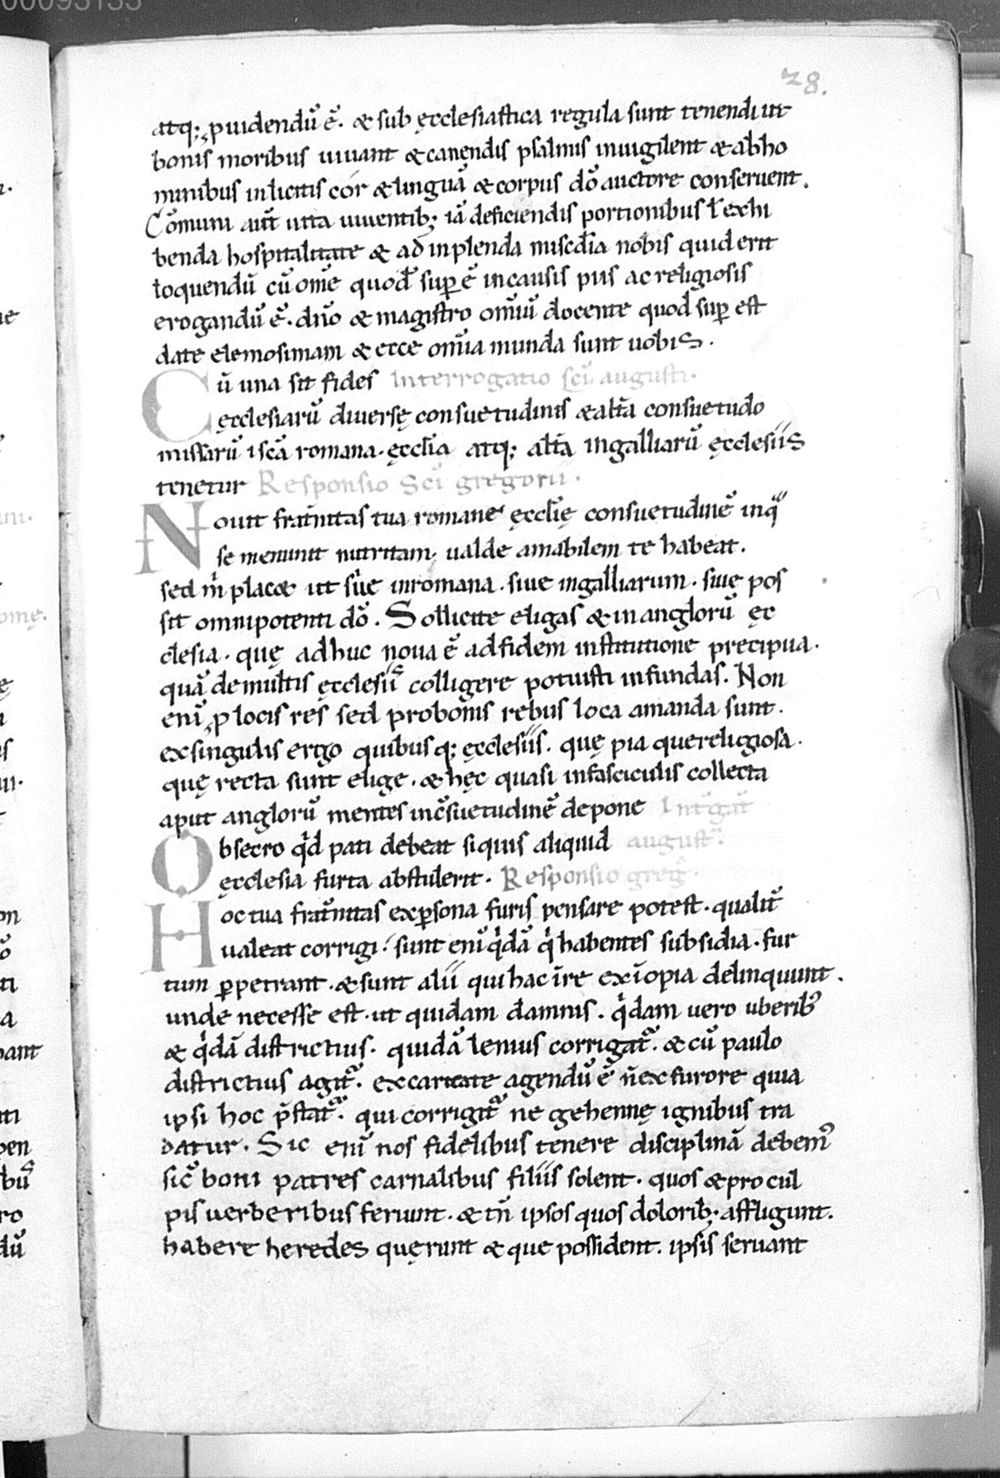 00093133
28.
atq; ꝓuidendū ē. & sub ęcclesiastica regula sunt tenendi ut
bonis moribus uiuant & canendis psalmis inuigilent & abho
minibus inlicitis cor & linguā & corpus dō auctore conseruent.
Cōmuni aūt uita uiuentib; iā deficiendis portionibus ł exhi
benda hospitalitate & ad inplenda miscdīa nobis quid erit
loquendū cū om̄e quod sup ē in causis piis ac religiosis
erogandū ē. dn̄o & magistro om̄iū docente quod sup est
date elemosinam & ecce om̄ia munda sunt uobis.
Cū una sit fides Interrogatio sc̄i augusti.
ęcclesiarū diuersę consuetudinis & alt̄a consuetudo
missarū i sc̄a romana ęccl̄ia atq; alt̄a in galliarū ęcclesiis
tenetur Responsio sc̄i gregorii.
Nouit frat̄nitas tua romanę ęccl̄ię consuetudinē in qͣ
se meminit nutritam, ualde amabilem te habeat.
sed m̍ plac& ut siue in romana. siue in galliarum. siue pos
sit omnipotenti dō. Sollicite eligas & in anglorū ęc
clesia. quę adhuc noua ē ad fidem institutione precipua.
quā de multis ęcclesiis colligere potuisti infundas. Non
enī ꝓ locis res sed pro bonis rebus loca amanda sunt.
ex singulis ergo quibusq; ęcclesiis. quę pia que religiosa.
quę recta sunt elige. & hęc quasi in fasciculis collecta
aput anglorū mentes in c̄suetudinē depone Int̄gat̄
Obsecro q̍d pati debeat siquis aliquid august̄.
ęcclesia furta abstulerit. Responsio greḡ.
Hoc tua frat̄nitas ex ꝑsona furis pensare potest. qualit̄
ualeat corrigi. sunt enī q̍dā q̍ habentes subsidia. fur
tum ꝑpetrant. & sunt alii qui hac īre ex iopia delinquunt.
unde necesse est. ut quidam damnis. q̍dam uero uberib᷒
& q̍dā districtius. quidā lenius corrigat᷑. & cū paulo
districtius agit᷑. ex caritate agendū ē n̄ ex furore quia
ipsi hoc p̄stat᷑. qui corrigit᷑ ne gehennę ignibus tra
datur. Sic enī nos fidelibus tenere disciplinā debem᷒
sic̄ boni patres carnalibus filiis solent. quos & pro cul
pis uerberibus feriunt. & tn̄ ipsos quos dolorib; affligunt.
habere heredes quęrunt & que possident. ipsis seruant